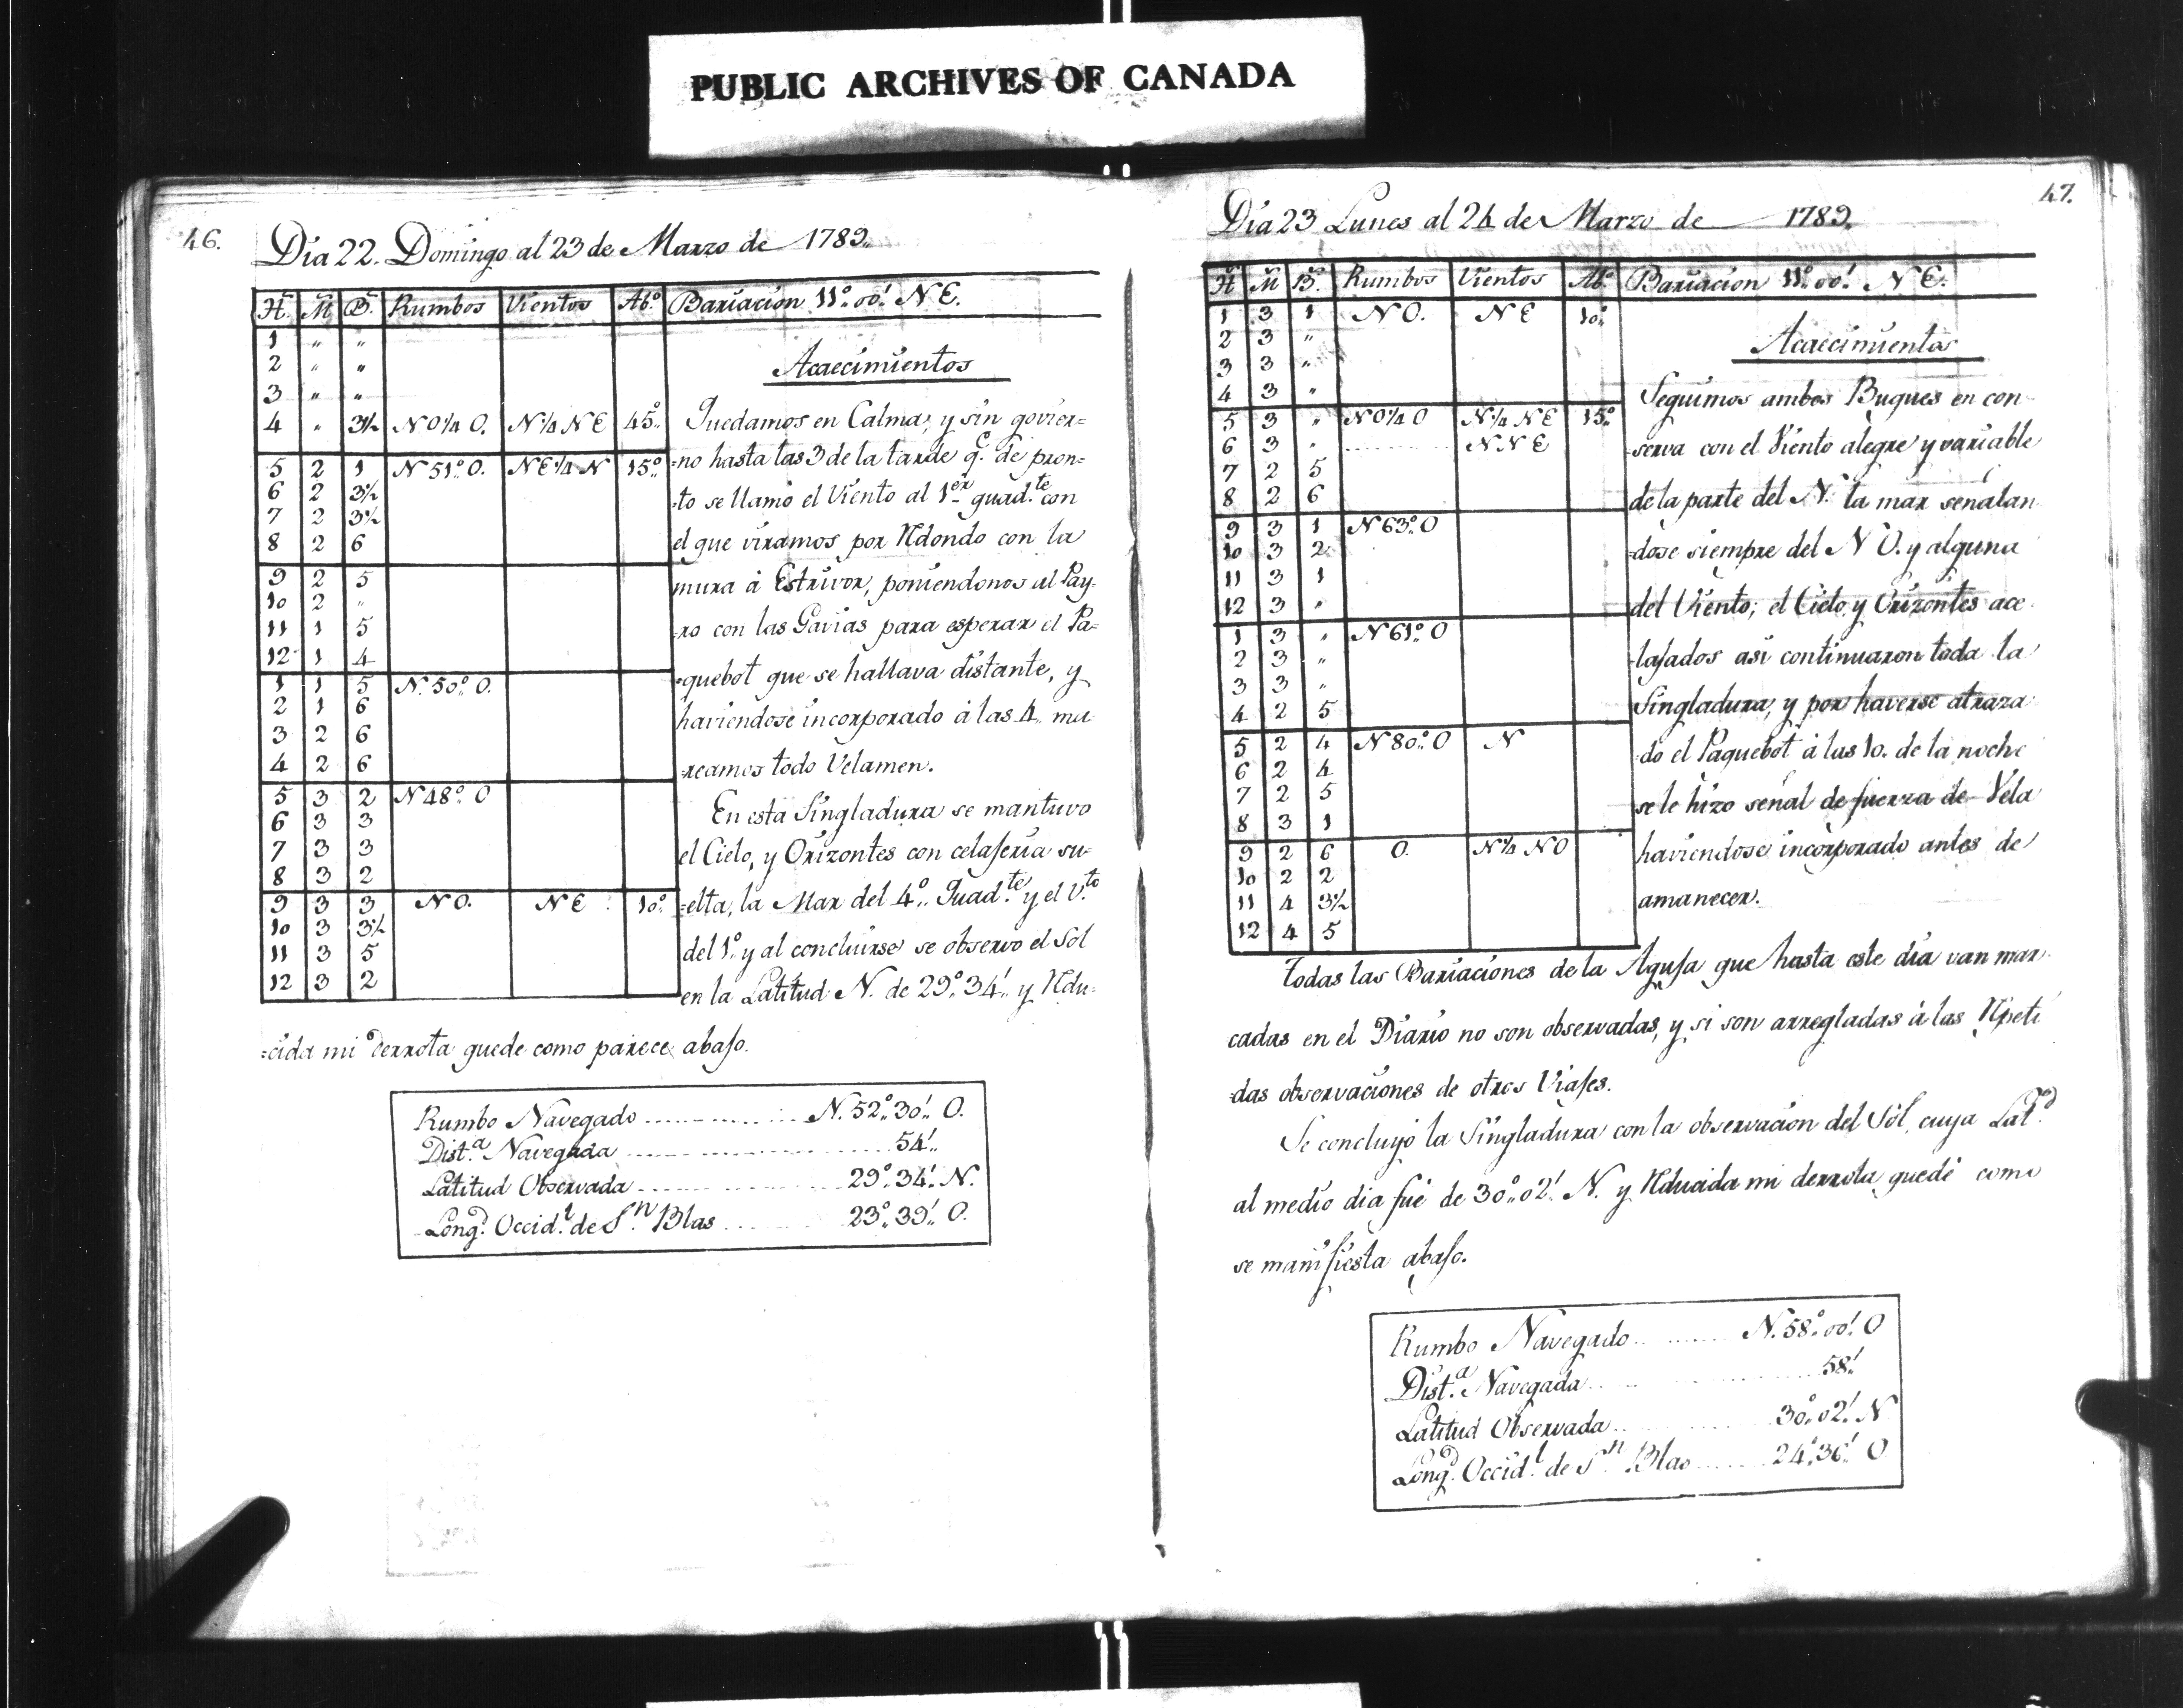 PUBLIC ARCHIVES OF CANADA
46.
Dia 22. Domingo al 23 de Marzo de 1789.
H. M B. Rumbos Vientos Ab.º Bariacion 11º.00'. N E.
1 " "
2 " "
3 " "
4 " 3½ N O¼ O. N¼ N E 45º
5 2 1 N 51º. O. N E ¼ N 15º
6 2 3½
7 2 3½
8 2 6
9 2 5
10 2 "
11 1 5
12 1 4
1 1 5 N. 50º. O.
2 1 6
3 2 6
4 2 6
5 3 2 N 48º. O
6 3 3
7 3 3
8 3 2
9 3 3 N O. N E 10º
10 3 3½
11 3 5
12 3 2
Acaecimientos
Quedamos en Calma, y sin govier=
=no hasta las 3 de la tarde q.e de pron=
=to se llamó el Viento al 1.er quad.te con
el que viramos por Rdondo con la
mura á Estrivor, poniendonos al Pay=
=ro con las Gavias para esperar el Pa=
=quebot que se hallava distante, y
haviendose incorporado á las 4 ma=
=reamos todo Velamen.
En esta Singladura se mantuvo
el Cielo, y Orizontes con celaferia su=
=elta, la Mar del 4.º Quad.te y el V.to
del 1.º y al concluirse se observo el Sol
en la Latitud N. de 29º.34'. y Rdu=
=cida mi derrota quede como parece abajo.
Rumbo Navegado N. 52º.30'. O.
Dist.a Navegada 54'.
Latitud Observada 29º.34'. N.
Long.d Occid.l de S.n Blas 23º.39'. O.
47.
Dia 23 Lunes al 24 de Marzo de 1789.
H M B. Rumbos Vientos Ab.º Bariacion 11º.00'. N E.
1 3 1 N O. N E 10º
2 3 "
3 3 "
4 3 "
5 3 " N O¼ O N¼ N E 15º
6 3 " N N E
7 2 5
8 2 6
9 3 1 N 63º. O
10 3 2
11 3 1
12 3 "
1 3 " N 61º. O
2 3 "
3 3 "
4 2 5
5 2 4 N 80º. O N
6 2 4
7 2 5
8 3 1
9 2 6 O. N¼ N O
10 2 2
11 4 3½
12 4 5
Acaecimientos
Seguimos ambos Buques en con=
=serva con el Viento alegre y variable
de la parte del N. la mar señalan
=dose siempre del N O. y alguna
del Viento; el Cielo y Orizontes ace
=lajados asi continuaron toda la
Singladura, y por haverse atraza=
=do el Paquebot á las 10. de la noche
se le hizo señal de fuerza de Vela
haviendose incorporado antes de
amanecer.
Todas las Bariaciones de la Aguja que hasta este dia van mar=
cadas en el Diario no son observadas, y si son arregladas á las Rpeti
=das observaciones de otros Viajes.
Se concluyó la Singladura con la observacion del Sol, cuya Lat.d
al medio dia fué de 30º.02'. N. y Rducida mi derrota quedé como
se manifiesta abajo.
Rumbo Navegado N. 58º.00'. O
Dist.a Navegada 58'.
Latitud Observada 30º.02'. N
Long.d Occid.l de S.n Blas 24º.36'. O